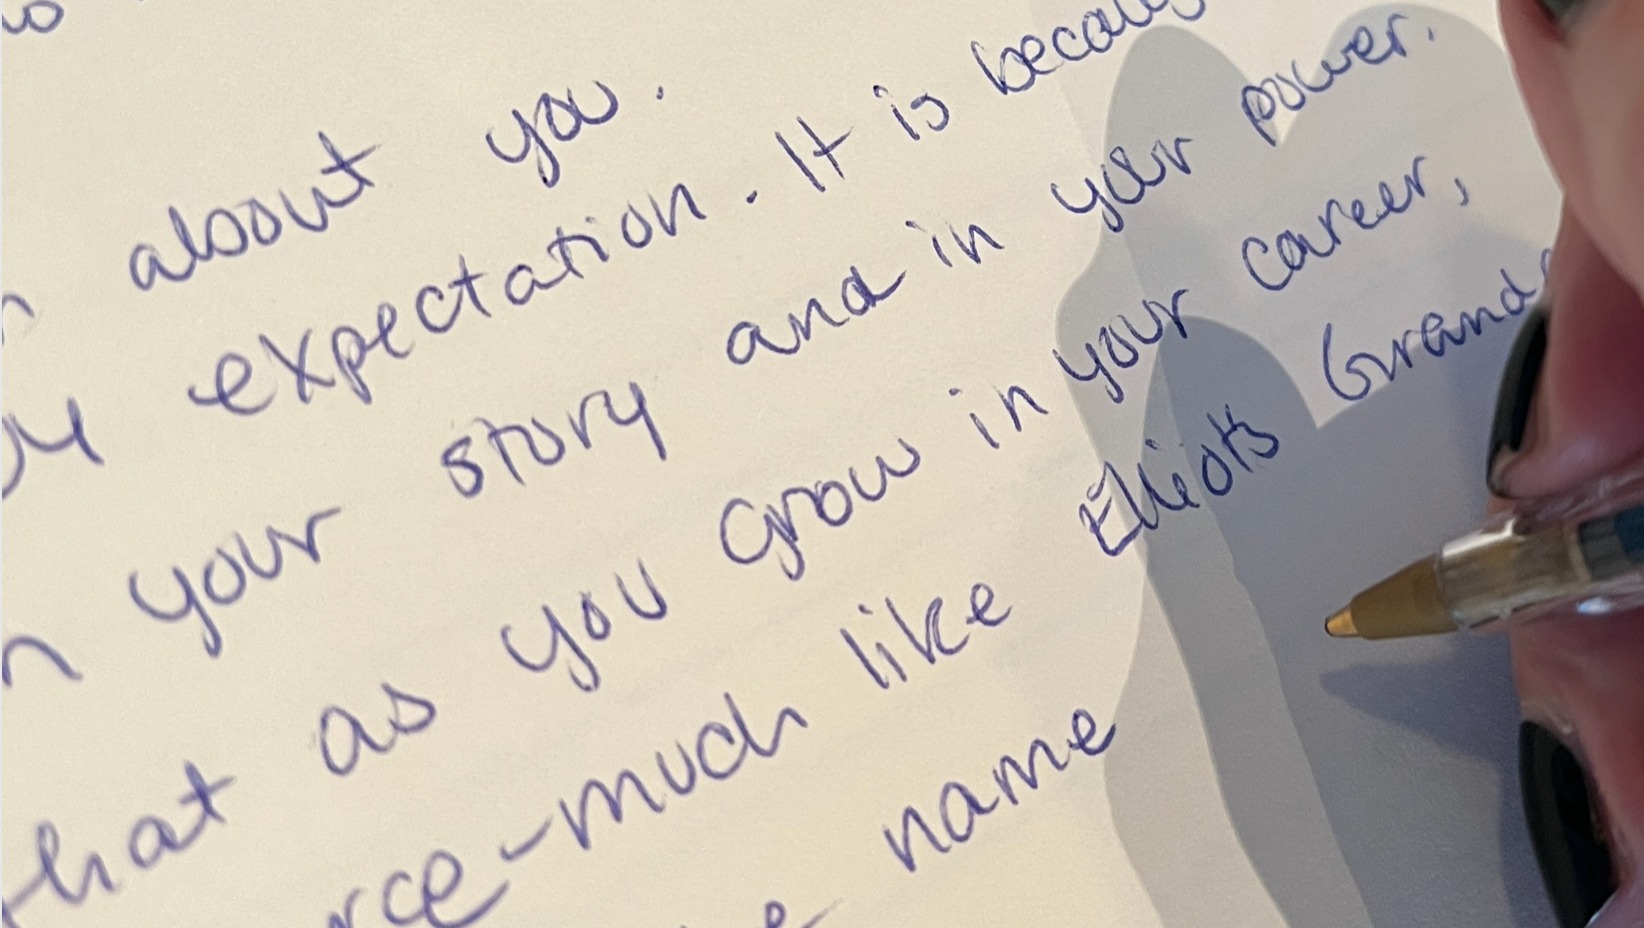 about you.
expectation. It is
your story and in your power.
that as you grow in your career,
much like Elliots
name